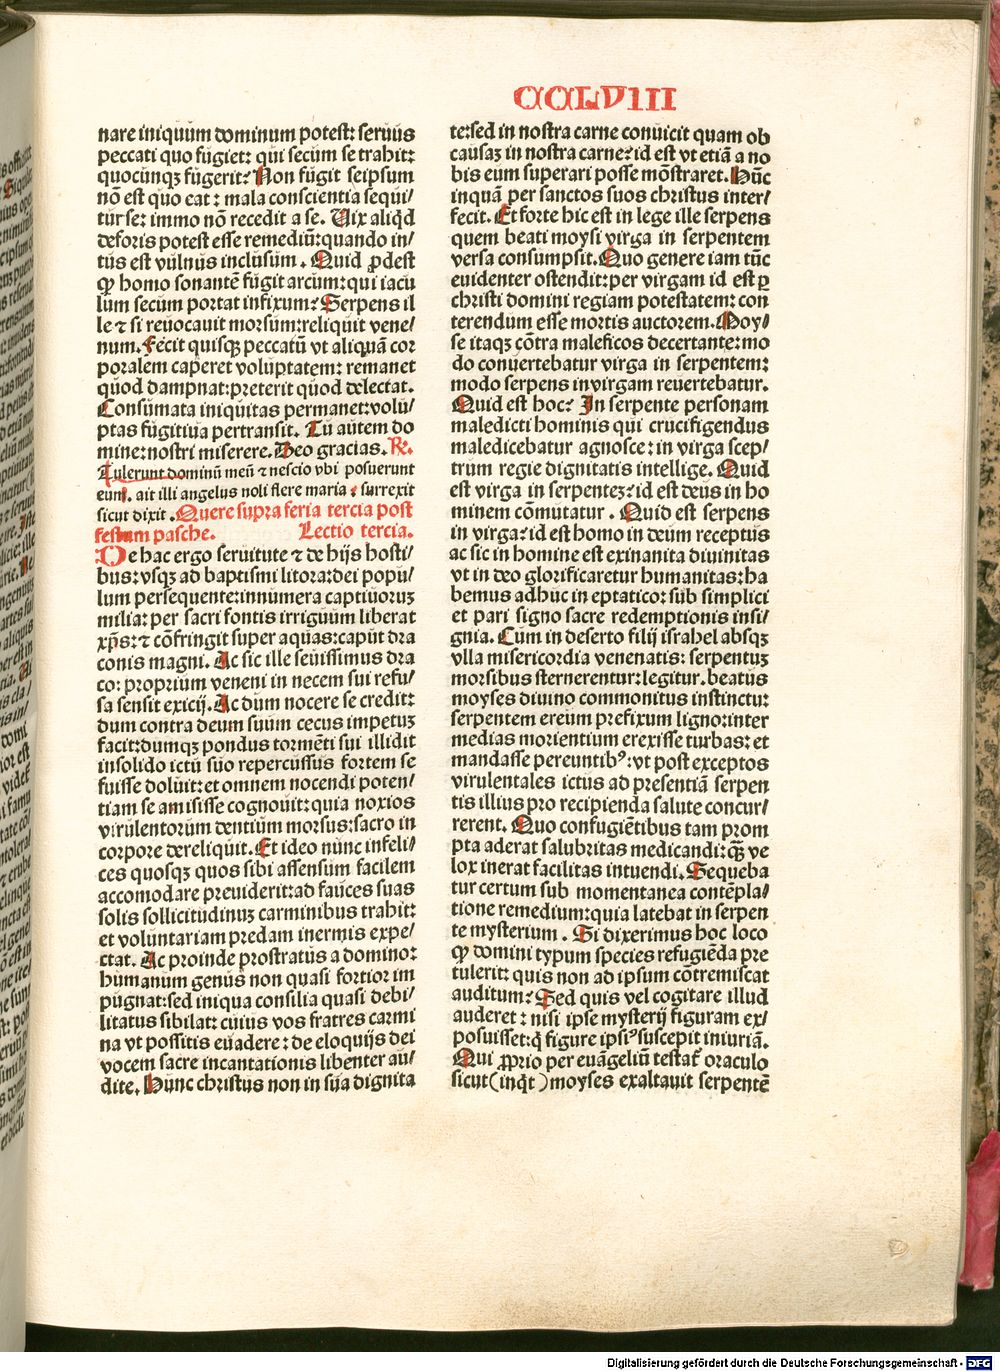 CCLVIII
nare iniquum dominum potest: seruus
peccati quo fugiet: qui secum se trahit:
quocunqꝫ fugerit? Non fugit seipsum
nō est quo eat: mala conscientia sequi/
tur se: immo nō recedit a se. Vix aliqd
deforis potest esse remediū: quando in/
tus est vulnus inclusum. Quid ꝓdest
ꝙ homo sonantē fugit arcum: qui iacu
lum secum portat infixum? Serpens il
le ⁊ si reuocauit morsum: reliquit vene/
num. Fecit quisqꝫ peccatū vt aliquā cor
poralem caperet voluptatem: remanet
quod dampnat: preterit quod delectat.
Consumata iniquitas permanet: volu/
ptas fugitiua pertransit. Tu autem do
mine: nostri miserere. Deo gracias. R.
Tulerunt dominū meū ⁊ nescio vbi posuerunt
eum. ait illi angelus noli flere maria: surrexit
sicut dixit. Quere supra feria tercia post
festum pasche. Lectio tercia.
De hac ergo seruitute ⁊ de hijs hosti/
bus: vsqꝫ ad baptismi litora: dei popu/
lum persequente: innumera captiuoruꝫ
milia: per sacri fontis irriguum liberat
xp̄s: ⁊ cōfringit super aquas: caput dra
conis magni. Ac sic ille seuissimus dra
co: proprium veneni in necem sui refu/
sa sensit exicij. Ac dum nocere se credit:
dum contra deum suum cecus impetuꝫ
facit: dumqꝫ pondus tormēti sui illidit
insolido ictu suo repercussus fortem se
fuisse doluit: et omnem nocendi poten/
tiam se amisisse cognouit: quia noxios
virulentorum dentium morsus: sacro in
corpore dereliquit. Et ideo nunc infeli/
ces quosqꝫ quos sibi assensum facilem
accomodare preuiderit: ad fauces suas
solis sollicitudinuꝫ carminibus trahit:
et voluntariam predam inermis expe/
ctat. Ac proinde prostratus a domino:
humanum genus non quasi fortior im
pugnat: sed iniqua consilia quasi debi/
litatus sibilat: cuius vos fratres carmi
na vt possitis euadere: de eloquijs dei
vocem sacre incantationis libenter au/
dite. Hunc christus non in sua dignita
te: sed in nostra carne conuicit quam ob
causaꝫ in nostra carne? id est vt etiā a no
bis eum superari posse mōstraret. Hūc
inquā per sanctos suos christus inter/
fecit. Et forte hic est in lege ille serpens
quem beati moysi virga in serpentem
versa consumpsit. Quo genere iam tūc
euidenter ostendit: per virgam id est ꝑ
christi domini regiam potestatem: con
terendum esse mortis auctorem. Moy/
se itaqꝫ cōtra maleficos decertante: mo
do conuertebatur virga in serpentem:
modo serpens in virgam reuertebatur.
Quid est hoc? In serpente personam
maledicti hominis qui crucifigendus
maledicebatur agnosce: in virga scep/
trum regie dignitatis intellige. Quid
est virga in serpenteꝫ? id est deus in ho
minem cōmutatur. Quid est serpens
in virga? id est homo in deum receptus
ac sic in homine est exinanita diuinitas
vt in deo glorificaretur humanitas: ha
bemus adhuc in eptatico: sub simplici
et pari signo sacre redemptionis insi/
gnia. Cum in deserto filij israhel absqꝫ
vlla misericordia venenatis: serpentuꝫ
morsibus sternerentur: legitur. beatus
moyses diuino commonitus instinctu:
serpentem ereum prefixum ligno: inter
medias morientium erexisse turbas: et
mandasse pereuntibꝰ: vt post exceptos
virulentales ictus ad presentiā serpen
tis illius pro recipienda salute concur/
rerent. Quo confugiētibus tam prom
pta aderat salubritas medicandi: qꝫ̄ ve
lox inerat facilitas intuendi. Sequeba
tur certum sub momentanea contēpla/
tione remedium: quia latebat in serpen
te mysterium. Si dixerimus hoc loco
ꝙ domini typum species refugiēda pre
tulerit: quis non ad ipsum cōtremiscat
auditum? Sed quis vel cogitare illud
auderet: nisi ipse mysterij figuram ex/
posuisset: q̄ figure ipsiꝰ suscepit iniuriā.
Qui ꝓprio per euāgeliū testat̄ oraculo
sicut (inq̄t) moyses exaltauit serpentē
Digitalisierung gefördert durch die Deutsche Forschungsgemeinschaft - DFG